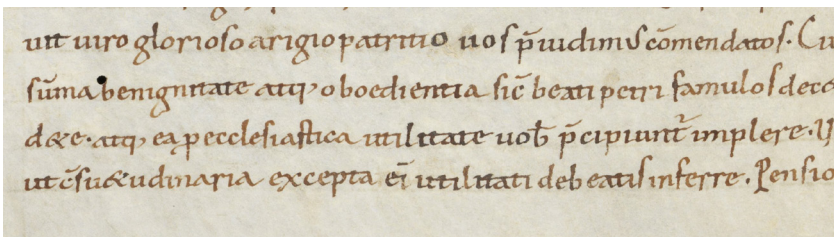 uit uiro glorioso arigio patritio uos p̄uidimus cōmendatos. Cu
sūma benignitate atq; oboedientia sic̄ beati petri famulos dece
dæe. atq; ea p ecclesiastica utilitate uob̄ p̄cipiunt̄ implere. U
ut c̄suæudinaria excepta ei̅ utilitati debeatis inferre. Pensio